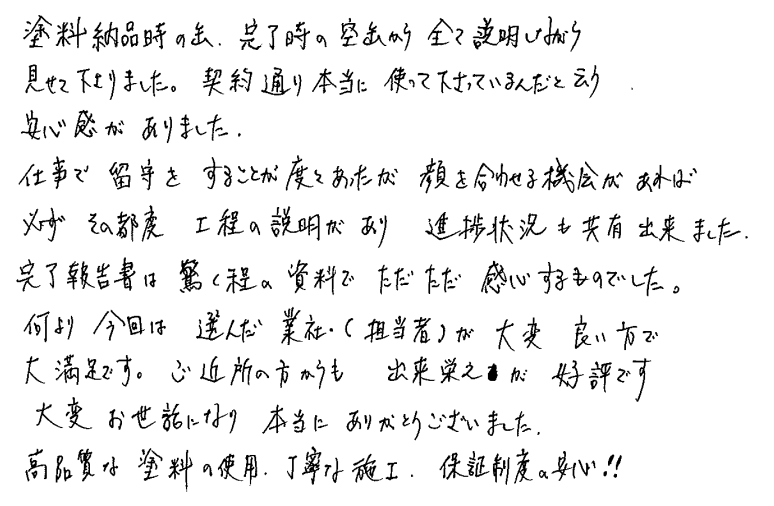 塗料納品時の缶、完了時の空缶から全て説明しながら
見せて下さりました。契約通り本当に使って下さっているんだと云う
安心感がありました。
仕事で留守をすることが度々あったが顔を合わせる機会があれば
必ずその都度工程の説明があり進捗状況も共有出来ました。
完了報告書は驚く程の資料でただただ感心するものでした。
何より今回は選んだ業社・(担当者)が大変良い方で
大満足です。ご近所の方からも出来栄えが好評です
大変お世話になり本当にありがとうございました。
高品質な塗料の使用、丁寧な施工、保証制度の安心!!